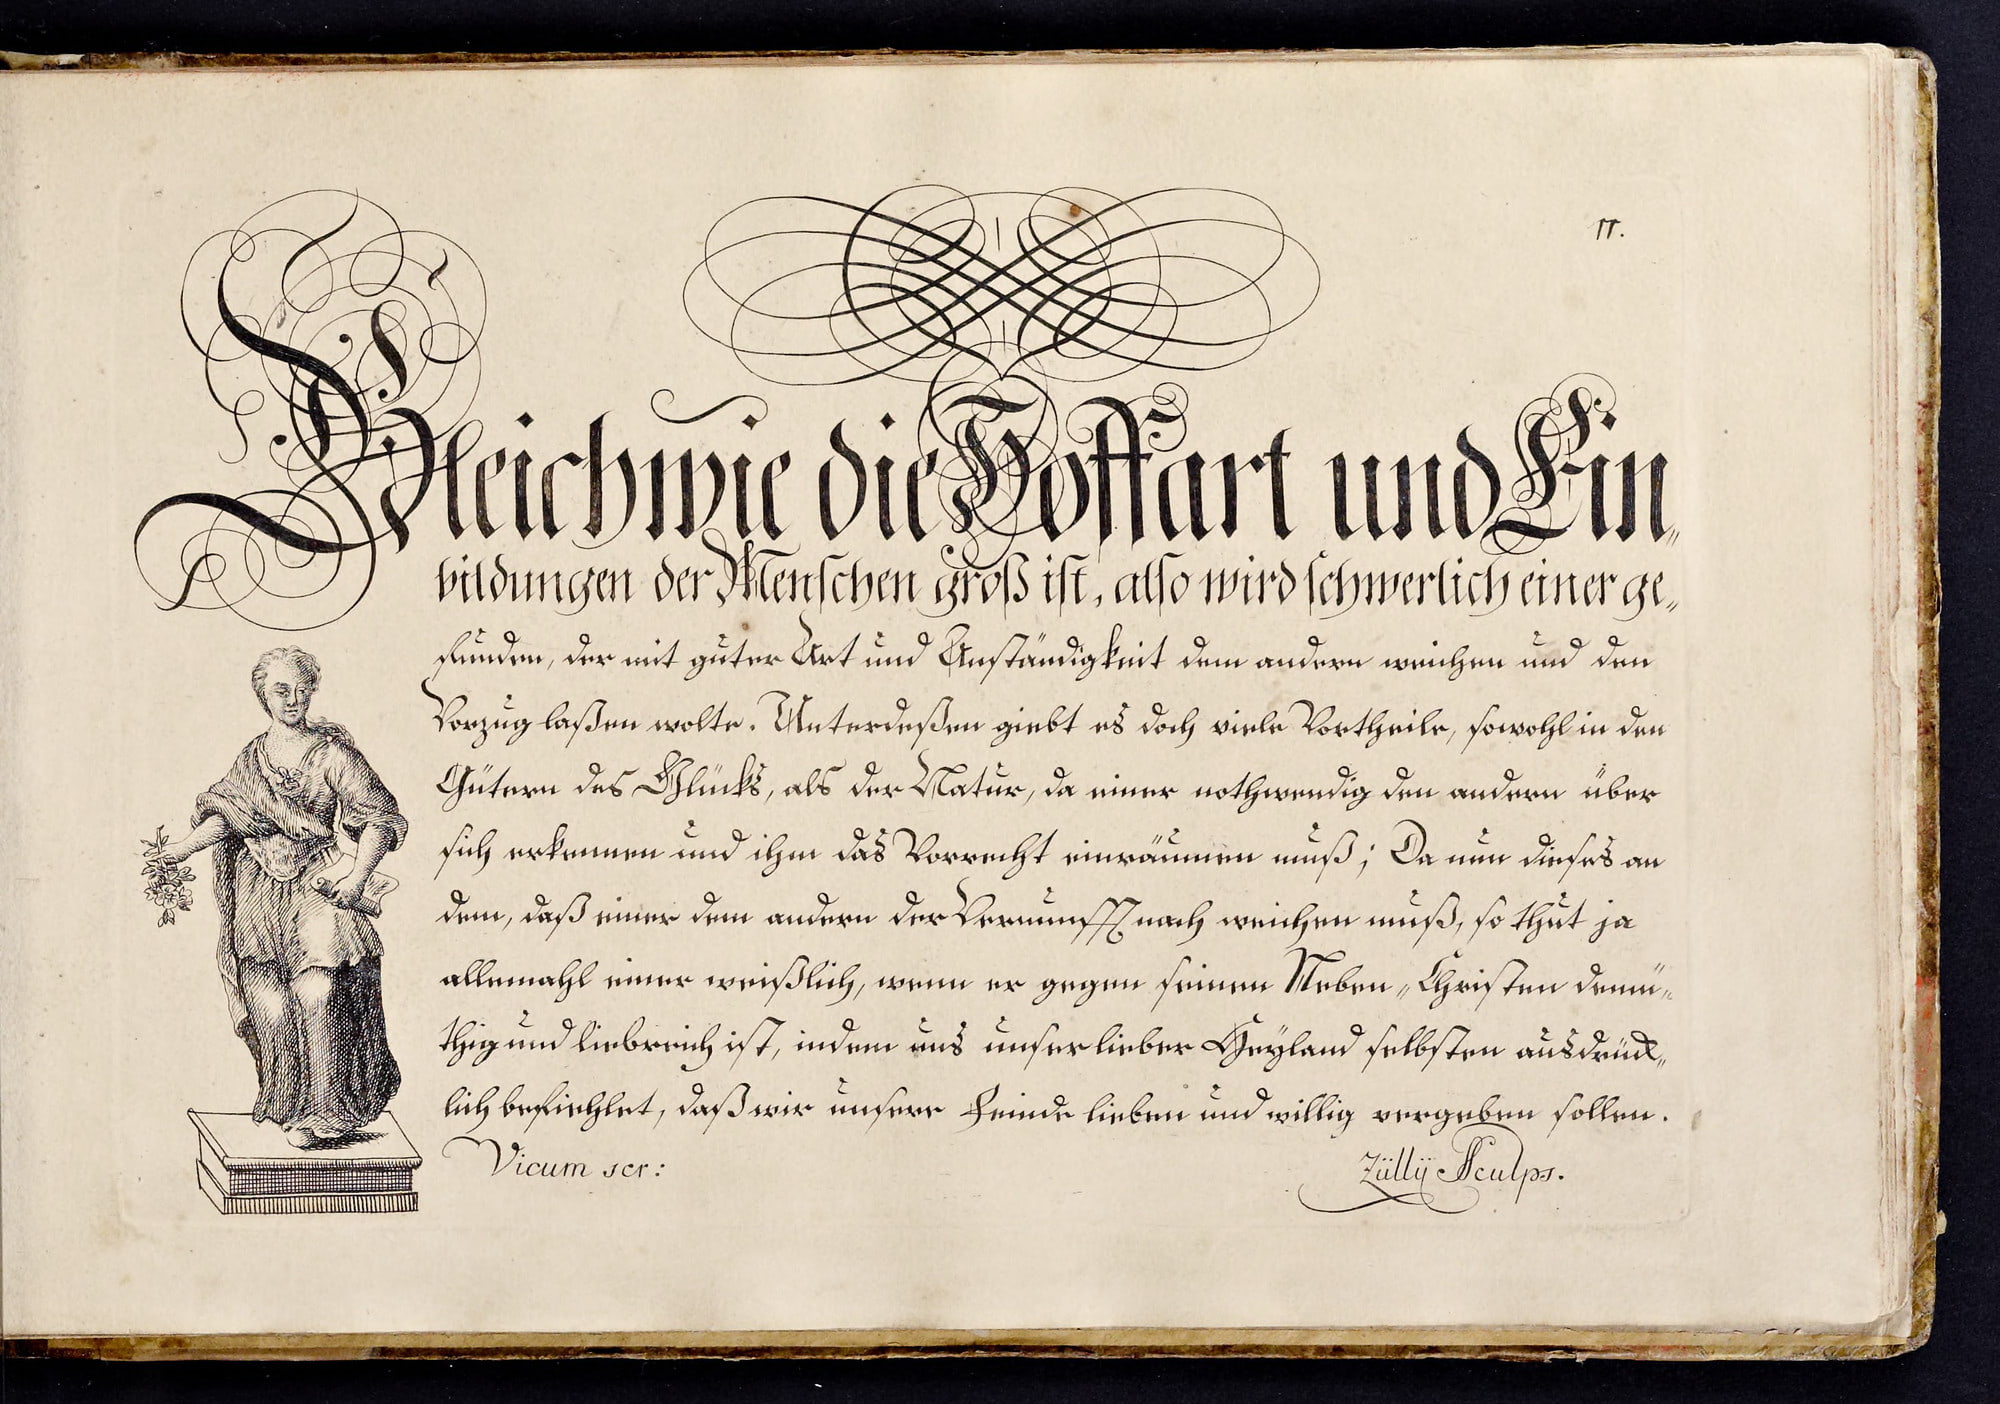 11.
Gleichwie die Hoffart und Ein„
bildungen der Menschen groß ist, also wird schwerlich einer ge„
funden, der mit guter Art und Anständigkeit dem andern weichen und den
Vorzug laßen wolte. Unterdeßen giebt es doch viele Vortheile, sowohl in den
Gütern des Glücks, als der Natur, da einer nothwendig den andern über
sich erkennen und ihm das Vorrecht einräumen muß; Da nun dieses an
dem, daß einer dem andern der Vernunfft nach weichen muß, so thut ja
allemahl einer weißlich, wenn er gegen seinen Neben„Christen demü„
thig und liebreich ist, indem uns unser lieber Heyland selbsten ausdrück„
lich befiehlet, daß wir unsere Feinde lieben und willig vergeben sollen.
Vicum scr:
Züllÿ Sculps.